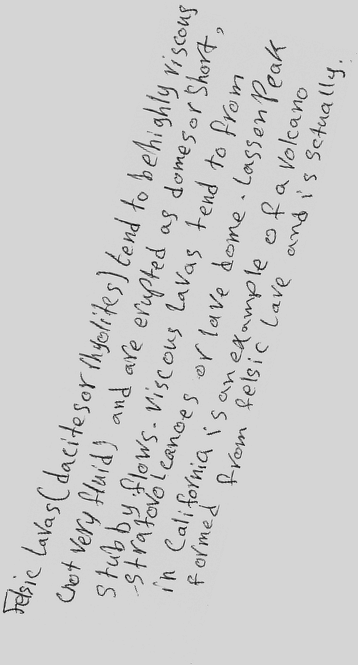 Felsic Lavas (dacites or rhyolites) tend to be highly viscous
(not very fluid) and are erupted as domes or short,
stubby flows. Viscous Lavas tend to from
-stratovolcanoes or lave dome. Lassen Peak
in California is an example of a volcano
formed from felsic Lave and is sctually.